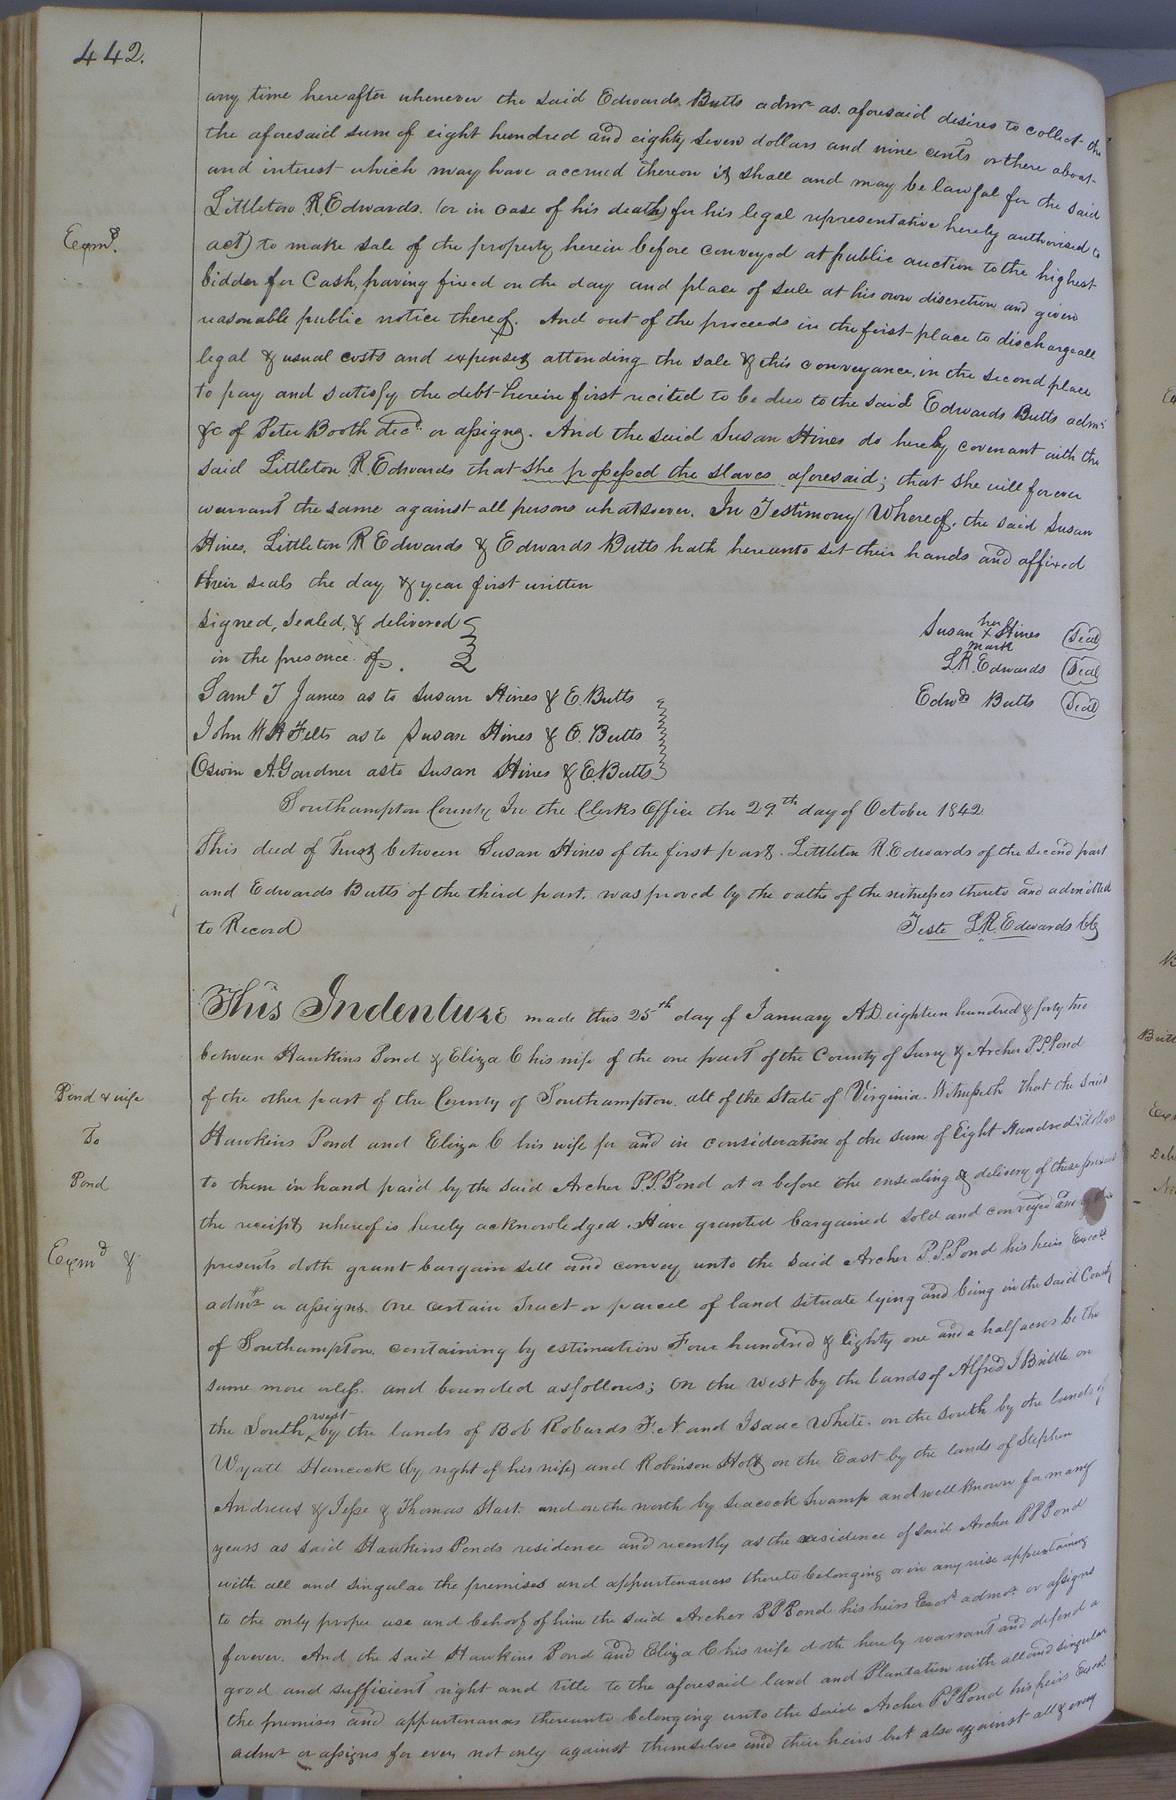 442.
any time hereafter whenever the said Edwards Butts admr as aforesaid desires to collect the
the aforesaid sum of eight hundred and eighty seven dollars and nine cents or there about
and interest which may have accrued thereon it shall and may be lawful for the said
Littleton R Edwards (or in case of his death) for his legal representative hereby authorised to
Exmd.
act) to make sale of the property herein before conveyed at public auction to the highest
bidder for Cash, having fixed on the day and place of sale at his own discretion and given
reasonable public notice thereof. And out of the proceeds in the first place to discharge all
legal & usual costs and expenses attending the sale & this conveyance, in the second place
to pay and satisfy the debt herein first recited to be due to the said Edwards Butts admr
&c of Peter Booth decd. or assigns. And the said Susan Hines do hereby covenant with the
said Littleton R. Edwards that she possessed the slaves aforesaid; that she will forever
warrant the same against all persons whatsoever. In Testimony Whereof, the said Susan
Hines, Littleton R Edwards & Edwards Butts hath hereunto set their hands and affixed
their seals the day & year first written
signed, sealed, & delivered
in the presence of.
Susan her x mark Hines (Seal)
L.R. Edwards (Seal)
Saml T James as to Susan Hines & E. Butts
Edwds Butts (Seal)
John W H Felts as to Susan Hines & E. Butts
Oswin A. Gardner as to Susan Hines & E. Butts
Southampton County In the Clerks Office the 29.th day of October 1842
This deed of Trust between Susan Hines of the first part. Littleton R. Edwards of the second part
and Edwards Butts of the third part. was proved by the oaths of the witnesses thereto and admitted
to Record
Teste L.R. Edwards Clk
This Indenture made this 25th day of January AD eighteen hundred & forty two
between Hawkins Pond & Eliza C his wife of the one part of the County of Surry & Archer P.P. Pond
Pond & wife
To
Pond
of the other part of the County of Southampton. all of the State of Virginia. Witnesseth That the said
Hawkins Pond and Eliza C his wife for and in consideration of the sum of Eight Hundred dollars
to them in hand paid by the said Archer P.P. Pond at or before the ensealing & delivery of these presents
the receipt whereof is hereby acknowledged. Have granted bargained sold and conveyed and
Exmd &
presents doth grant bargain sell and convey unto the said Archer P.P. Pond his heirs Excors
admrs or assigns. One certain Tract or parcel of land situate lying and being in the said County
of Southampton. containing by estimation Four hundred & Eighty one and a half acres be the
same more or less. and bounded as follows; On the west by the lands of Alfred J Brittle on
the South west by the lands of Bob Robards F. N and Isaac White. on the south by the lands of
Wyatt Hancock (by right of his wife) and Robinson Holt on the East by the lands of Stephen
Andrews & Jesse & Thomas Hart. and on the north by Seacock Swamp and well known for many
years as said Hawkins Ponds residence and recently as the residence of said Archer P P Pond
with all and singular the premises and appurtenances thereto belonging or in any wise appertaining
to the only proper use and behoof of him the said Archer P P Pond his heirs Excrs admrs or assigns
forever. And the said Hawkins Pond and Eliza C his wife doth hereby warrant and defend a
good and sufficient right and title to the aforesaid land and Plantation with all and singular
the premises and appurtenances thereunto belonging unto the said Archer P P Pond his heirs Excors
admrs or assigns for ever, not only against themselves and their heirs but also against all & every